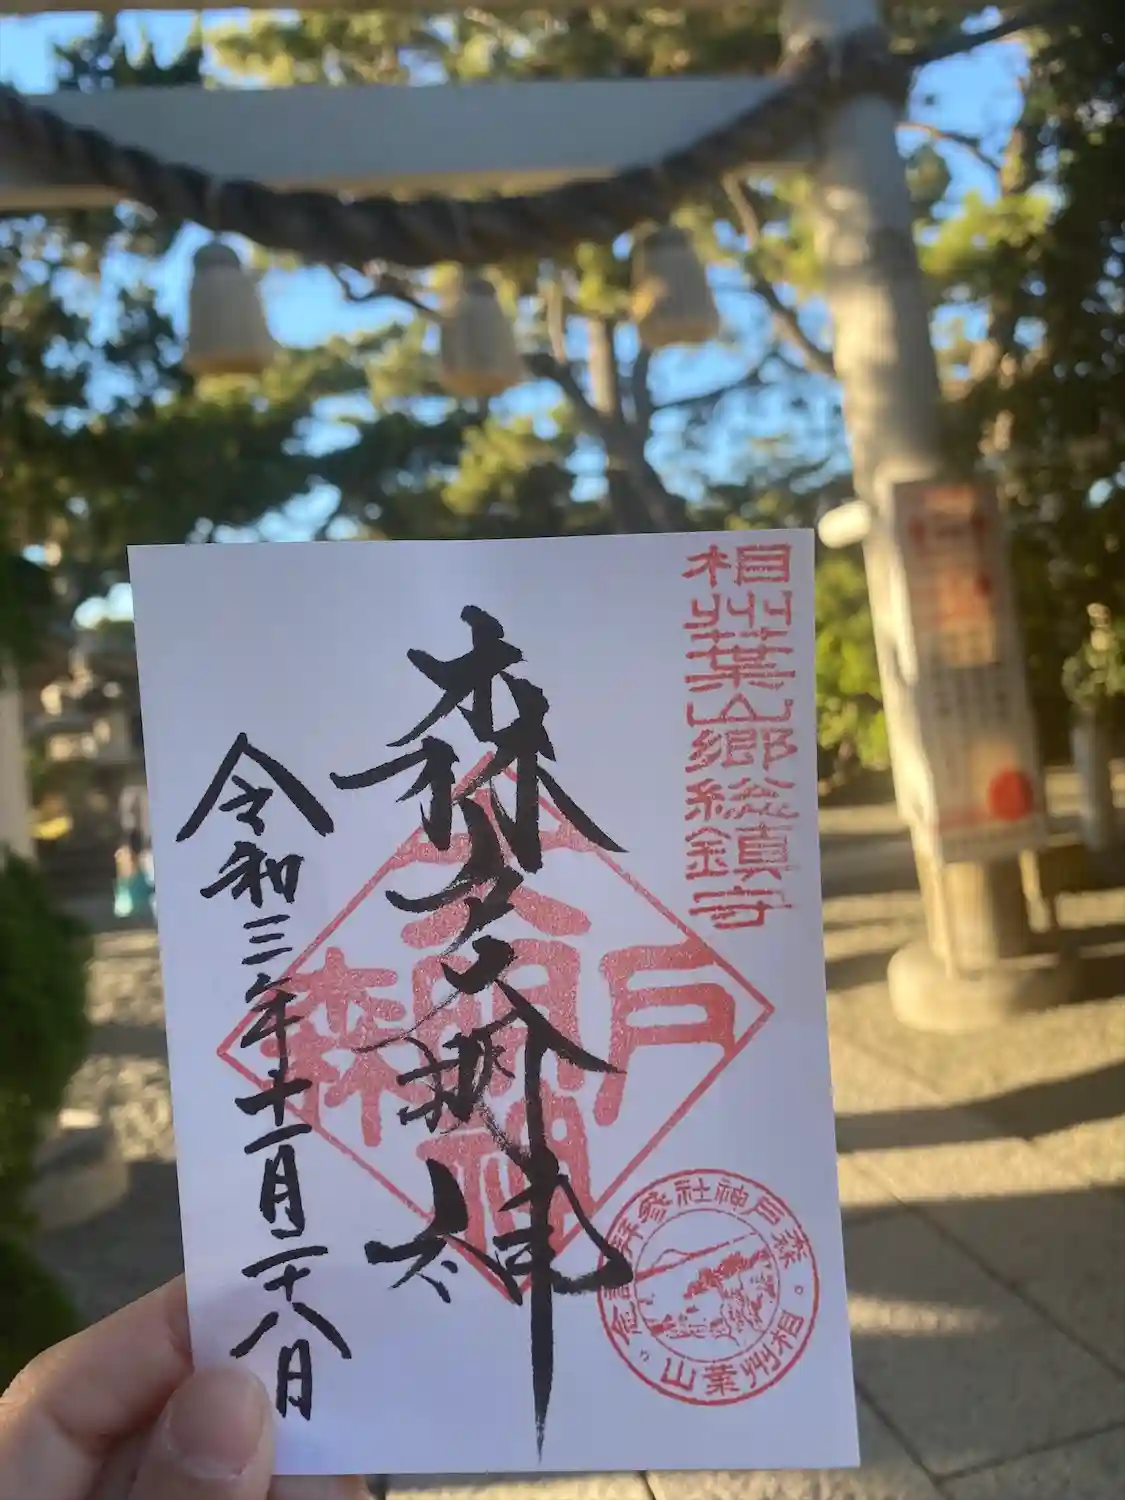 相州葉山郷総鎮守
森戸大明神
令和三年十一月二十八日
森戸大明神
森戸神社參拝記念
相州葉山